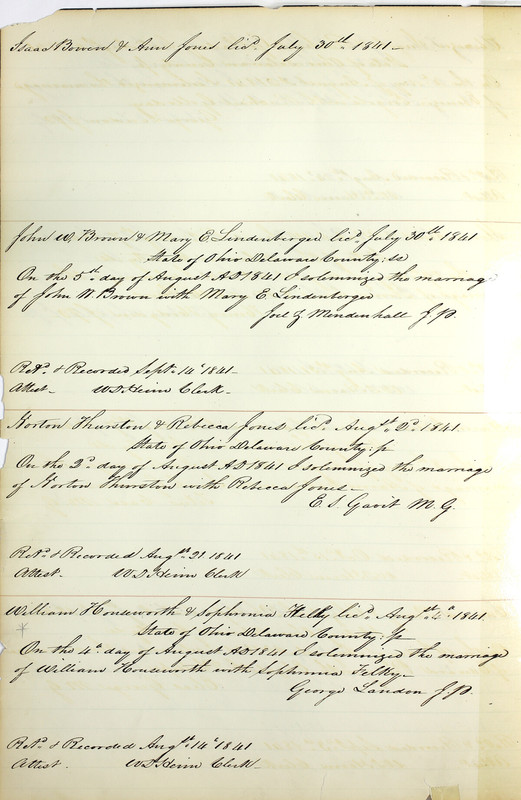 Isaac Bowen & Ann Jones licd. July 30th 1841
John W. Brown & Mary E. Lindenberger licd. July 30th 1841
State of Ohio Delaware County: ss
On the 5th day of August AD 1841 I solemnized the marriage
of John W Brown with Mary E. Lindenberger
Joel Z Mendenhall J.P.
Retd. & Recorded Sept. 14th 1841
Attest. W D Heim Clerk
Norton Thurston & Rebecca Jones licd. Augst. 2d. 1841
State of Ohio Delaware County: ss
On the 2d. day of August AD 1841 I solemnized the marriage
of Norton Thurston with Rebecca Jones
E. S. Gavit M.G.
Retd. & Recorded Augst. 21 1841
Attest. W D Heim Clerk
William Houseworth & Sophronia Felky licd. Augst. 4th. 1841
State of Ohio Delaware County: ss
On the 4th day of August AD 1841 I solemnized the marriage
of William Houseworth with Sophronia Felky
George Landon J.P.
Retd. & Recorded Augst. 14th 1841
Attest. W D Heim Clerk